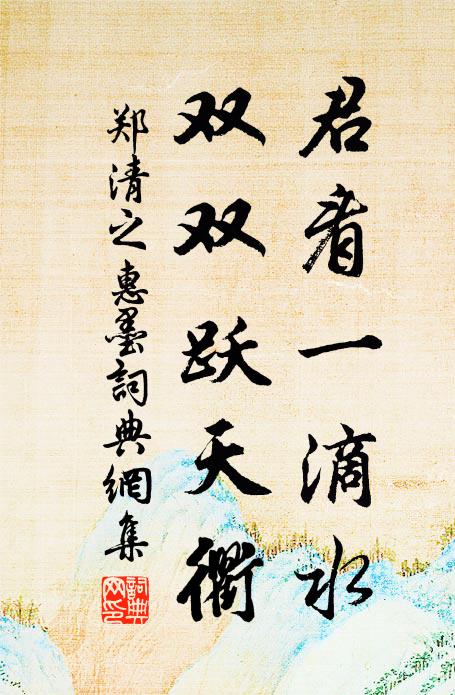 君看一滴水
双双跃天衢
郑清之惠墨詞典網集
詞典网印